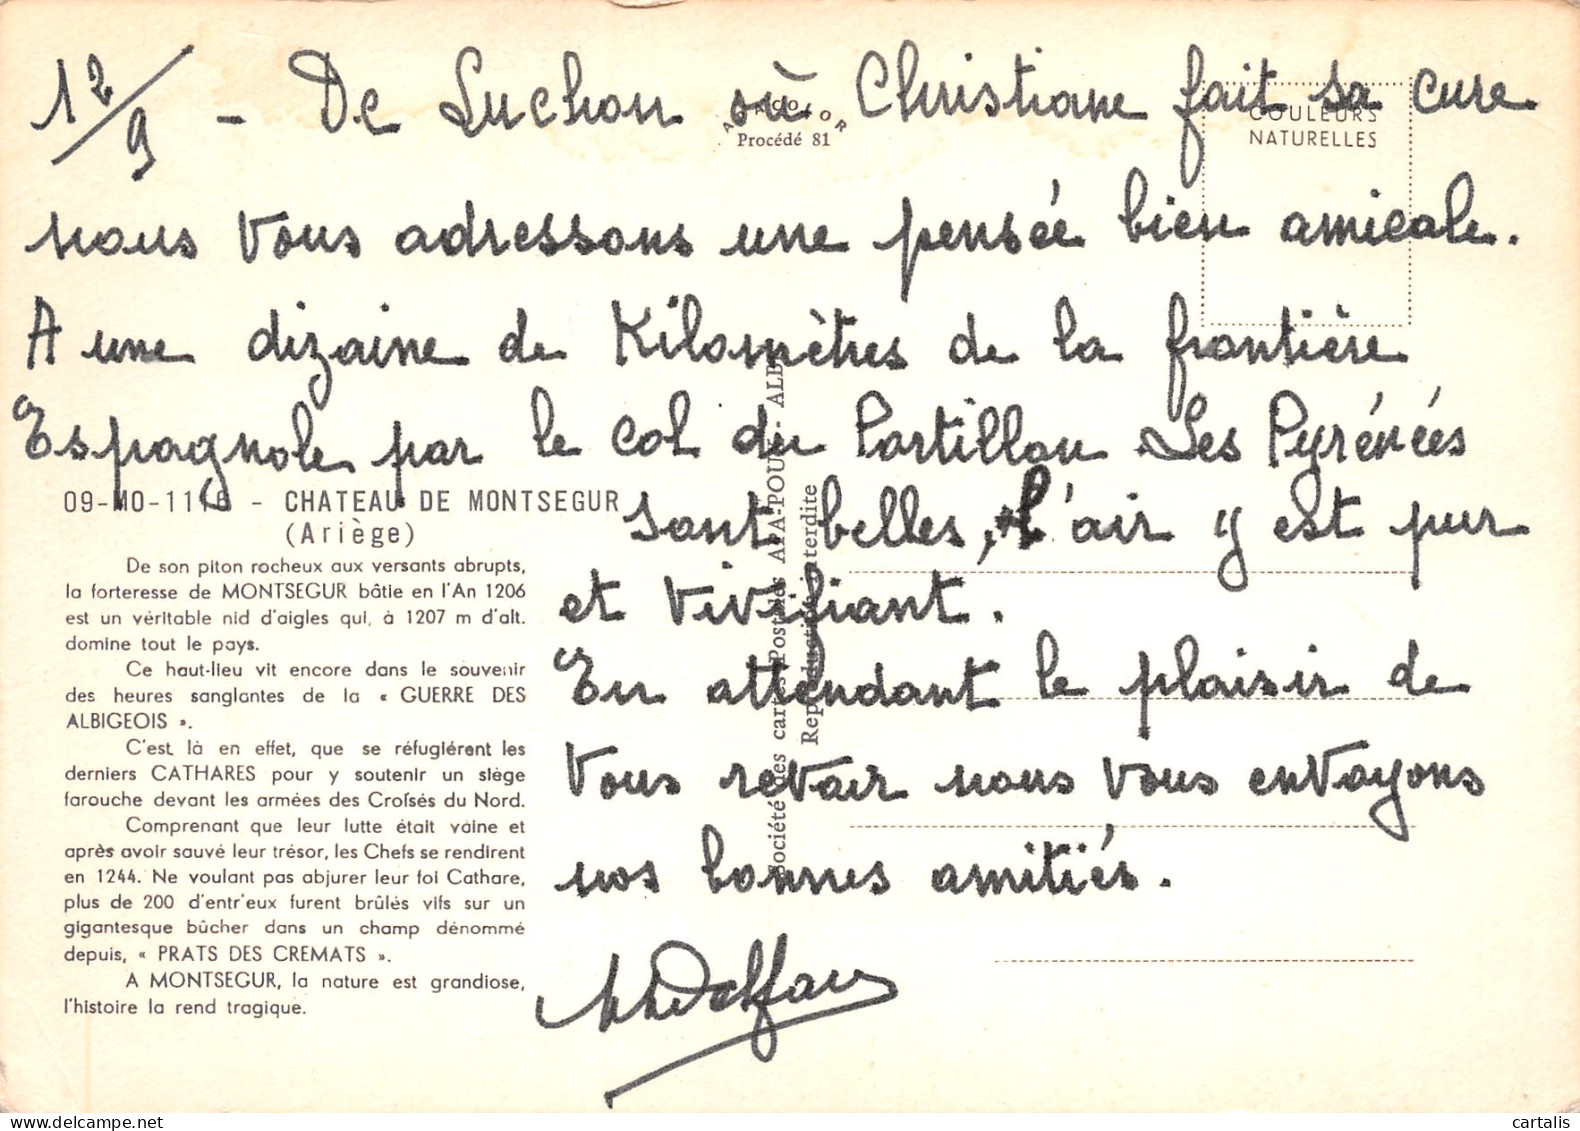 12/9 - De Luchon où Christiane fait sa cure
nous vous adressons une pensée bien amicale.
A une dizaine de Kilomètres de la frontière
Espagnole par le col du Portillon Les Pyrénées
sont belles, l'air y est pur
et vivifiant.
En attendant le plaisir de
vous revoir nous vous envoyons
nos bonnes amitiés.
Procédé 81
COULEURS
NATURELLES
CHATEAU DE MONTSEGUR
(Ariège)
De son piton rocheux aux versants abrupts,
la forteresse de MONTSEGUR bâtie en l'An 1206
est un véritable nid d'aigles qui, à 1207 m d'alt.
domine tout le pays.
Ce haut-lieu vit encore dans le souvenir
des heures sanglantes de la « GUERRE DES
ALBIGEOIS ».
C'est là en effet, que se réfugiérent les
derniers CATHARES pour y soutenir un siège
farouche devant les armées des Croisés du Nord.
Comprenant que leur lutte était vaine et
après avoir sauvé leur trésor, les Chefs se rendirent
en 1244. Ne voulant pas abjurer leur foi Cathare,
plus de 200 d'entr'eux furent brûlés vifs sur un
gigantesque bûcher dans un champ dénommé
depuis, « PRATS DES CREMATS ».
A MONTSEGUR, la nature est grandiose,
l'histoire la rend tragique.
Société des cartes Postales APA-POUX - ALBI
Reproduction interdite
cartalis